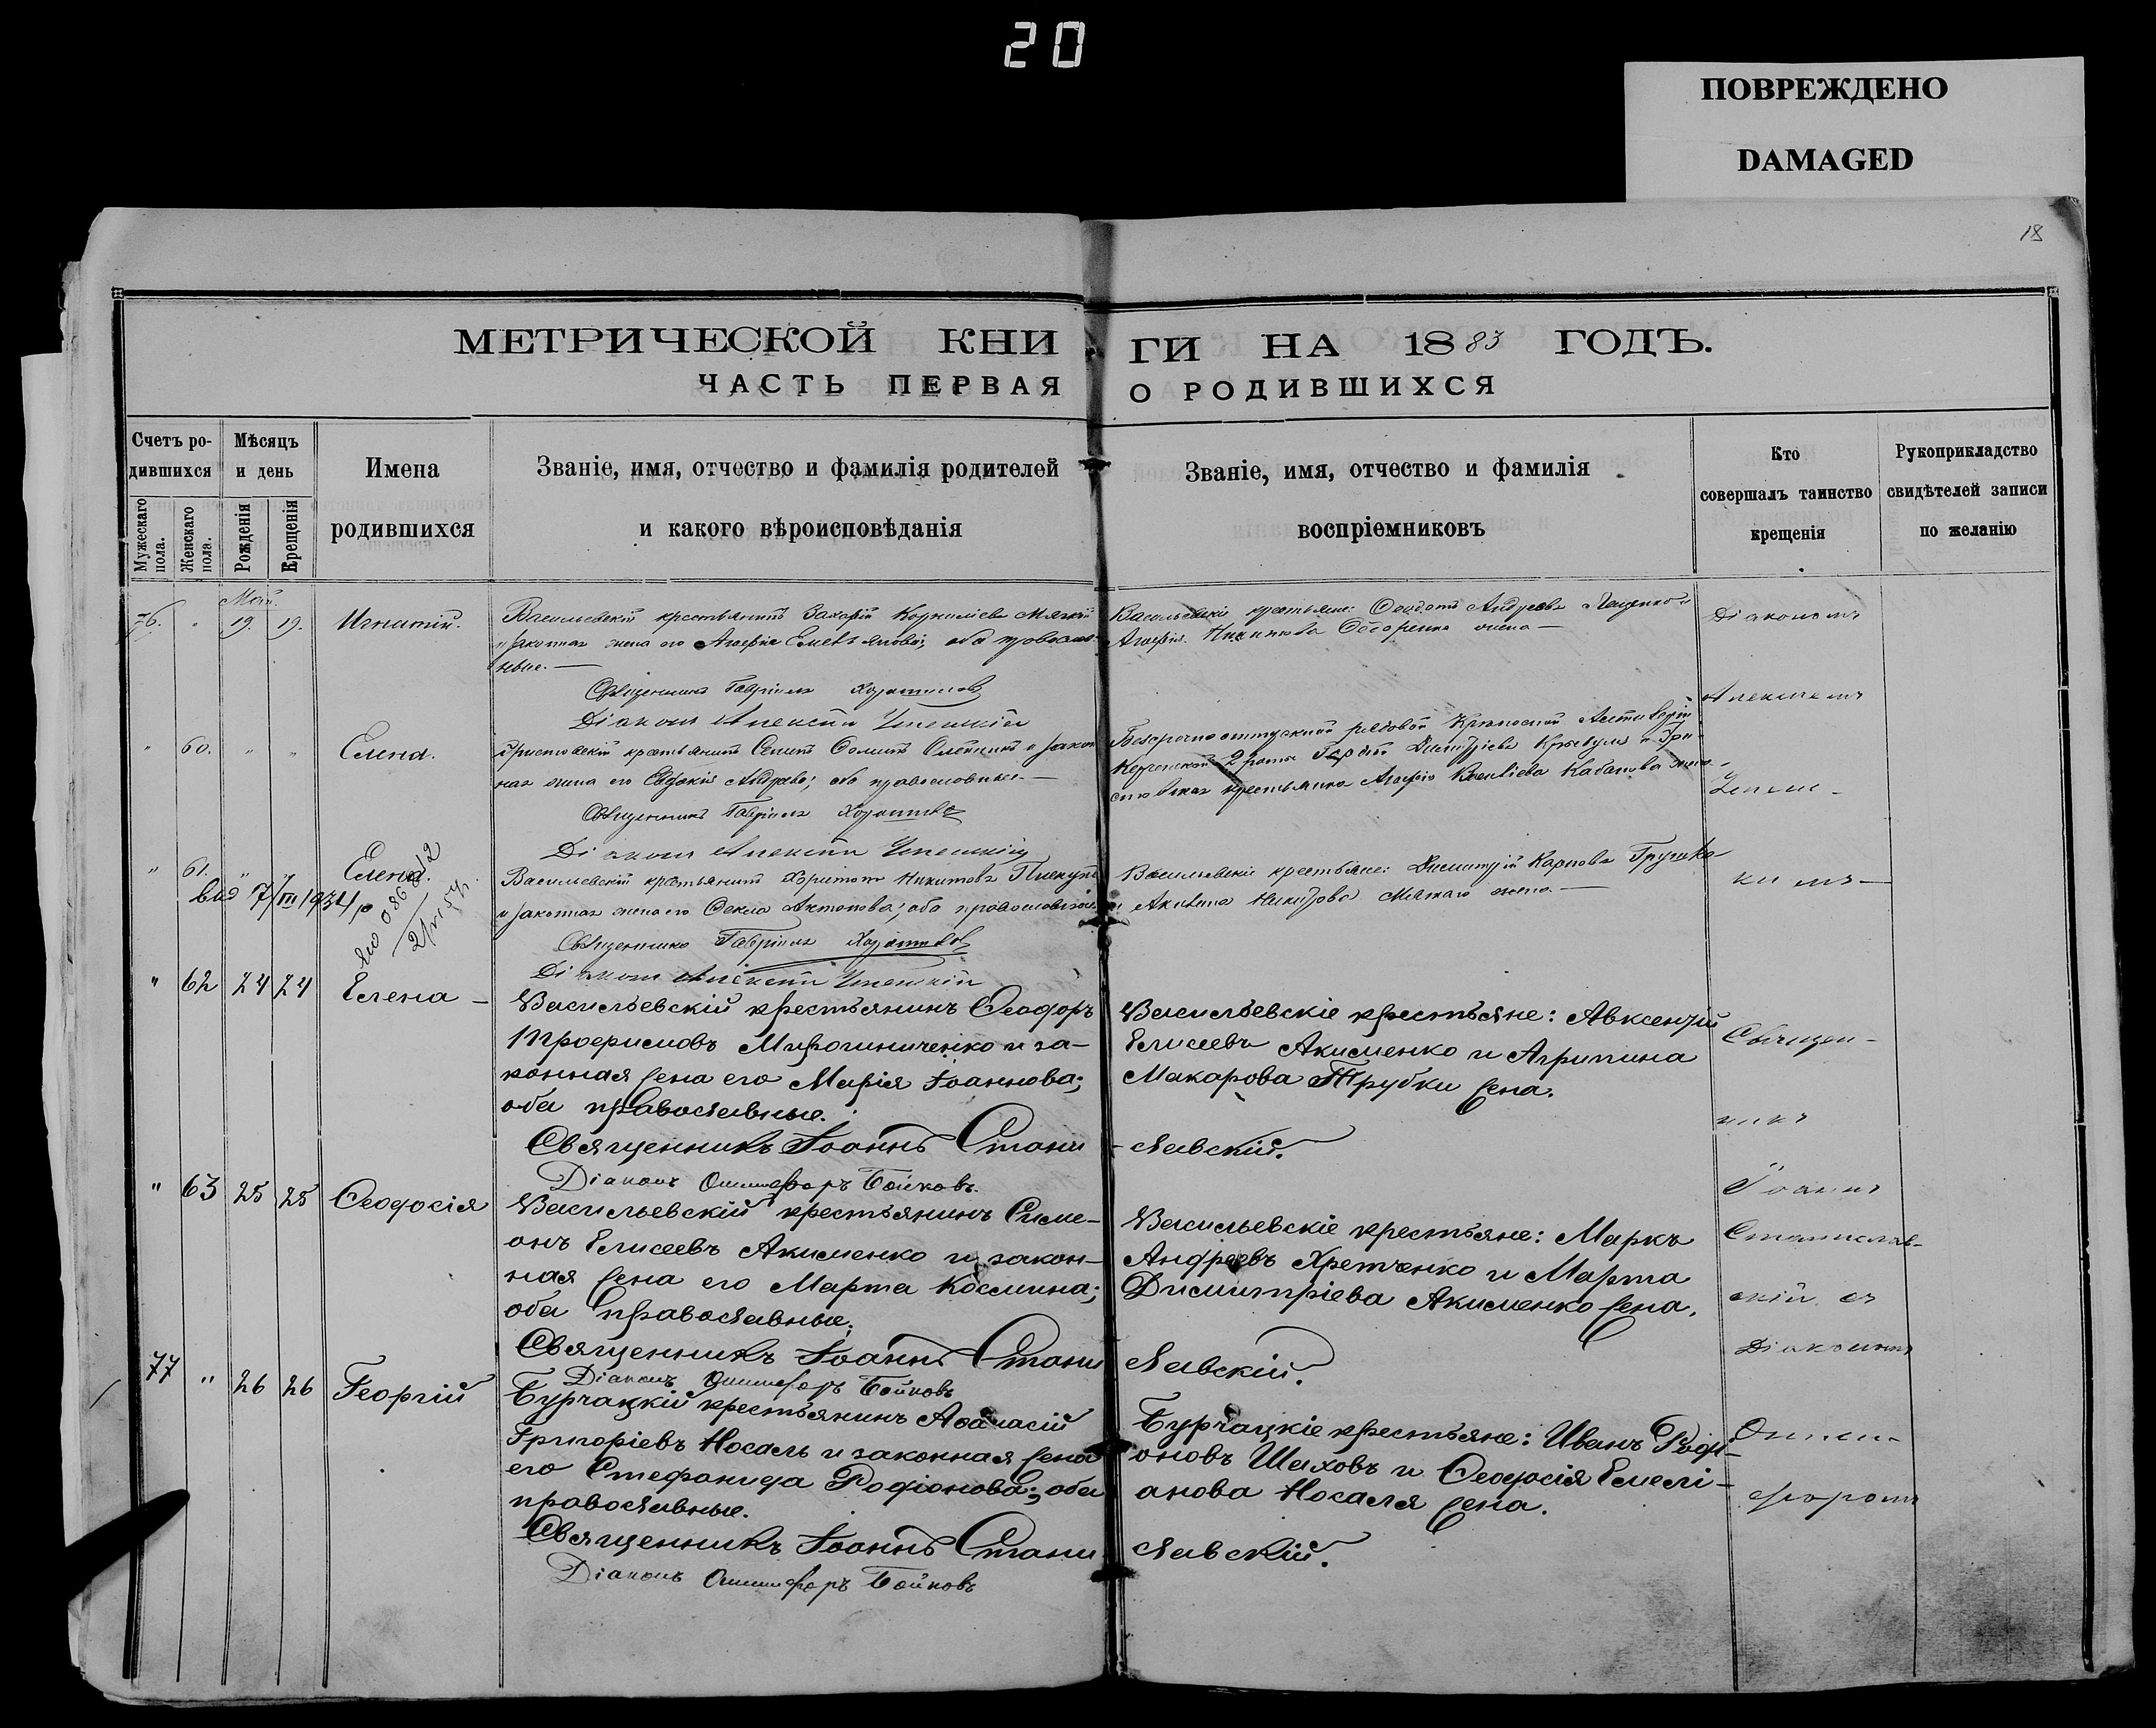 20
ПОВРЕЖДЕНО
DAMAGED
18
МЕТРИЧЕСКОЙ КНИ ГИ НА 1883 ГОДЪ.
ЧАСТЬ ПЕРВАЯ О РОДИВШИХСЯ
Счетъ ро-
дившихся
Мѣсяцъ
и день
Имена
родившихся
Званіе, имя, отчество и фамилія родителей
и какого вѣроисповѣданія
Званіе, имя, отчество и фамилія
воспріемниковъ
Кто
совершалъ таинство
крещенія
Рукоприкладство
свидѣтелей записи
по желанію
Мужескаго
пола.
Женскаго
пола.
Рожденія
Крещенія
Май.
76. " 19. 19. Игнатій.
Васильевскій крестьянинъ Захарій Корниліевъ
и законная жена его Агафія Емельянова; оба православ-
ные.—
Священникъ Гавріилъ
Діаконъ Алексій
Васильевскіе крестьяне: Ѳеодотъ Андреевъ Лященко и
Агафія Никитова жена—
Діакономъ
Алексіемъ
" 60. " " Елена.
крестьянинъ и закон
ная жена его Евдокія Андреева; оба православные.—
Священникъ Гавріилъ
Діаконъ Алексій
Безсрочноотпускной рядовой
Керченской 2 роты Димитріевъ и
крестьянка Агафія Кабанова жена
" 61. " Елена.
вид 7/VIII 1934 р
Васильевскій крестьянинъ Харитонъ Никитовъ
и законная жена его Ѳекла Антонова; оба православные.
Священникъ Гавріилъ
Діаконъ Алексій
Васильевскіе крестьяне: Димитрій Карповъ Грушко
и Акилина жена—
кимъ—
" 62 24 24 Елена—
Васильевскій крестьянинъ Ѳеодоръ
Трофимовъ Мирошниченко и за-
конная жена его Марія Іоаннова;
оба православные.
Священникъ Іоаннъ Стани-
славскій.
Діаконъ Онисифоръ Бойковъ.
Васильевскіе крестьяне: Авксентій
Елисеевъ Акименко и Агрипина
Макарова Трубки жена.
Священ-
никъ
Іоаннъ
" 63 25 25 Ѳеодосія
Васильевскій крестьянинъ Симе-
онъ Елисеевъ Акименко и закон-
ная жена его Марта Космина;
оба православные;
Священникъ Іоаннъ Стани
славскій.
Діаконъ Онисифоръ Бойковъ
Васильевскіе крестьяне: Маркъ
Андреевъ Хретченко и Марта
Димитріева Акименко жена.
Станислав-
скій съ
Діакономъ
77 " 26 26 Георгій
Бурчацкій крестьянинъ Аѳанасій
Григоріевъ Носаль и законная жена
его Стефанида Родіонова; оба
православные.
Священникъ Іоаннъ Стани
славскій.
Діаконъ Онисифоръ Бойковъ
Бурчацкіе крестьяне: Иванъ Роди-
оновъ Шаховъ и Ѳеодосія Емелі-
анова Носаля жена.
Ониси-
форомъ